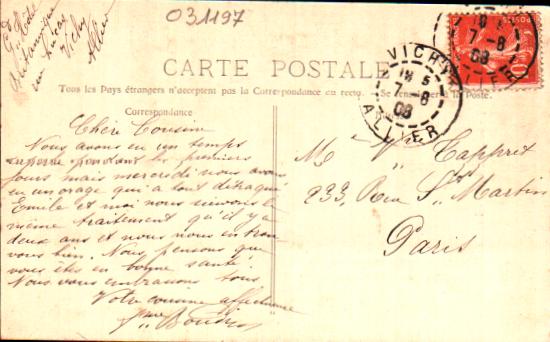 031197
Gd Hôtel
Vichy
Allier
CARTE POSTALE
Tous les Pays étrangers n'acceptent pas la Correspondance au recto. Se renseigner à la Poste.
Correspondance
VICHY
7-8
08
ALLIER
POSTES
7-8
08
Chère Cousine
Nous avons eu un temps
superbe pendant les premiers
jours mais mercredi nous avons
eu un orage qui a tout détraqué
Emile et moi nous suivons le
même traitement qu'il y a
deux ans et nous nous en trou
vons bien. Nous pensons que
vous êtes en bonne santé.
Nous vous embrassons tous
Votre cousine affectionnée
Me Vve Tappret
233, Rue St Martin
Paris